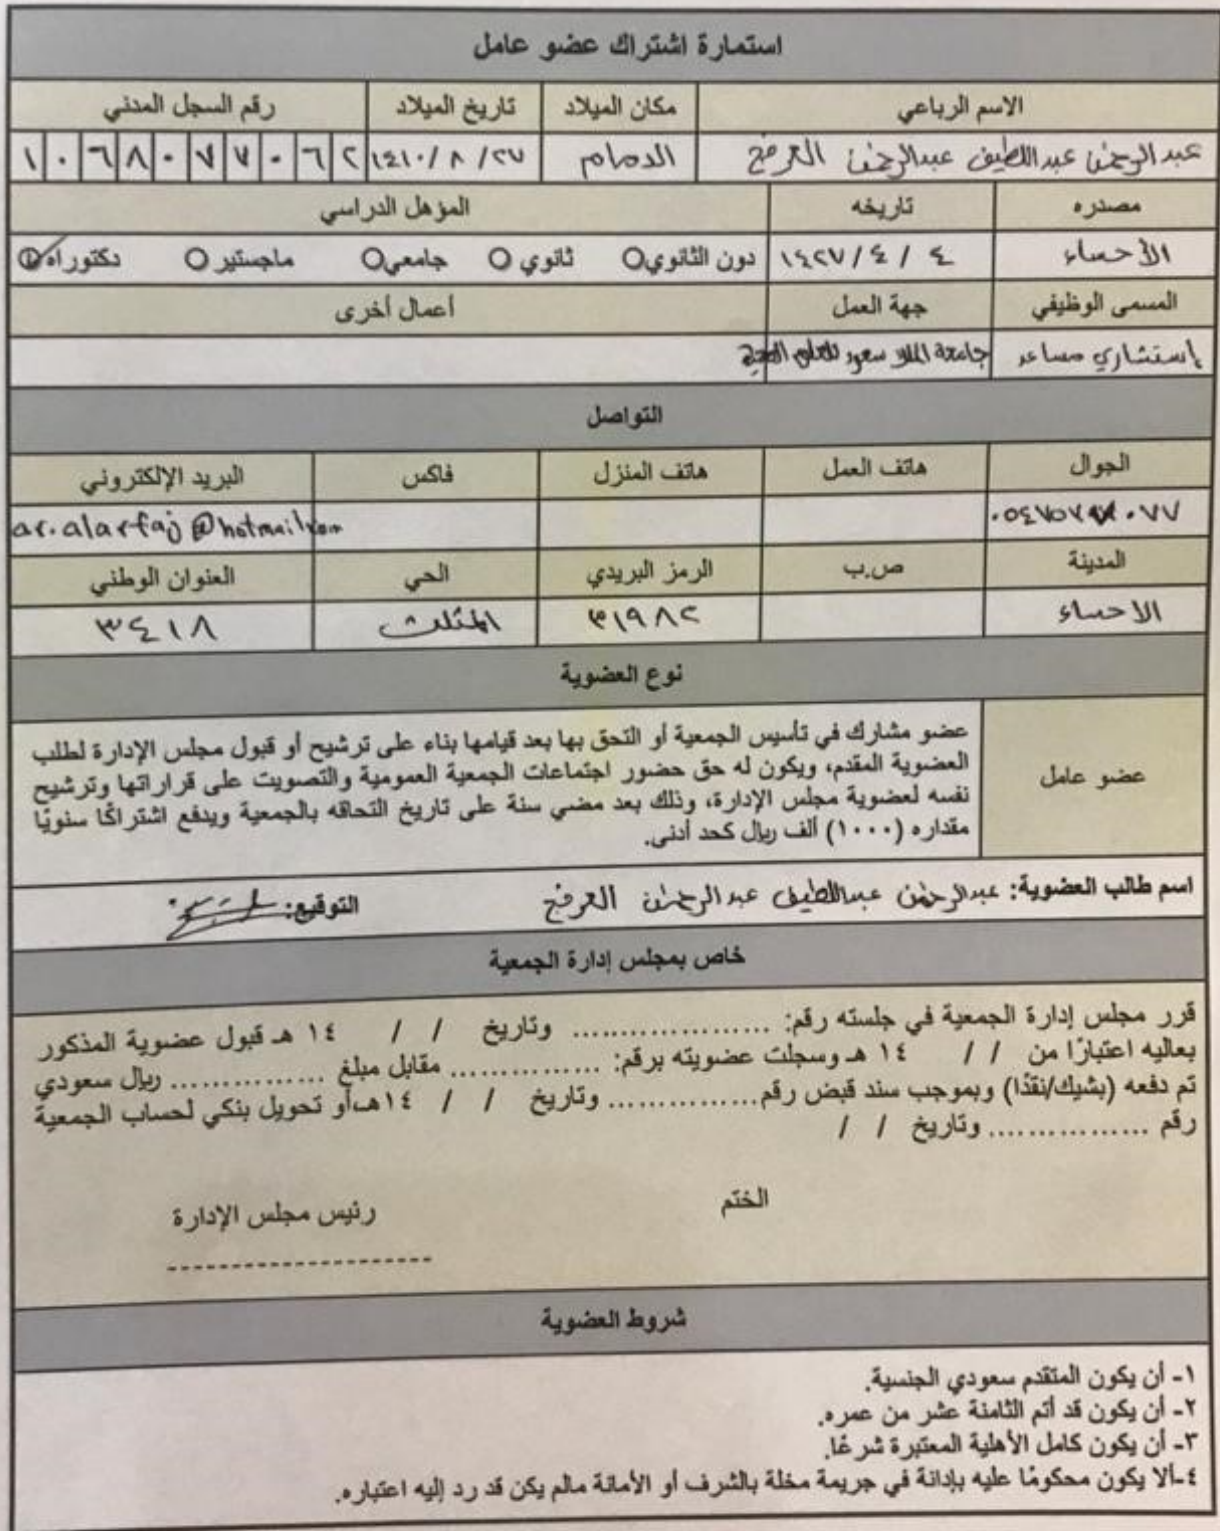 استمارة اشتراك عضو عامل
الاسم الرباعي مكان الميلاد تاريخ الميلاد رقم السجل المدني
عبدالرحمن عبداللطيف عبدالرحمن العرفج الدمام ٢٧/ ٨ /١٤١٠ ١٠٦٨٠٧٧٠٦٢
مصدره تاريخه المؤهل الدراسي
الأحساء ٤ / ٤ /١٤٢٧ دون الثانوي ثانوي جامعي ماجستير دكتوراه
المسمى الوظيفي جهة العمل أعمال أخرى
إستشاري مساعد جامعة الملك سعود للعلوم الصحية
التواصل
الجوال هاتف العمل هاتف المنزل فاكس البريد الإلكتروني
ar.alarfaj@hotmail.com
المدينة ص.ب الرمز البريدي الحي العنوان الوطني
الاحساء ٣١٩٨٢ المثلث ٣٤١٨
نوع العضوية
عضو عامل
عضو مشارك في تأسيس الجمعية أو التحق بها بعد قيامها بناء على ترشيح أو قبول مجلس الإدارة لطلب
العضوية المقدم، ويكون له حق حضور اجتماعات الجمعية العمومية والتصويت على قراراتها وترشيح
نفسه لعضوية مجلس الإدارة، وذلك بعد مضي سنة على تاريخ التحاقه بالجمعية ويدفع اشتراكًا سنويًا
مقداره (١٠٠٠) ألف ريال كحد أدنى.
اسم طالب العضوية: عبدالرحمن عبداللطيف عبدالرحمن العرفج التوقيع:
خاص بمجلس إدارة الجمعية
قرر مجلس إدارة الجمعية في جلسته رقم: .................... وتاريخ / / ١٤ هـ قبول عضوية المذكور
بعاليه اعتبارًا من / / ١٤ هـ وسجلت عضويته برقم: ............... مقابل مبلغ ............... ريال سعودي
تم دفعه (بشيك/نقدًا) وبموجب سند قبض رقم............... وتاريخ / / ١٤هـ،أو تحويل بنكي لحساب الجمعية
رقم ................ وتاريخ / /
الختم رئيس مجلس الإدارة
---------------------
شروط العضوية
١- أن يكون المتقدم سعودي الجنسية.
٢- أن يكون قد أتم الثامنة عشر من عمره.
٣- أن يكون كامل الأهلية المعتبرة شرعًا.
٤-ألا يكون محكومًا عليه بإدانة في جريمة مخلة بالشرف أو الأمانة مالم يكن قد رد إليه اعتباره.